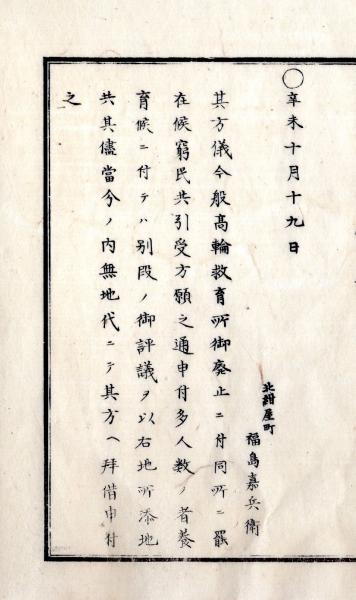 ○
辛未十月十九日
北紺屋町
福島嘉兵衛
其方儀今般髙輪救育所御廃止ニ付同所ニ罷
在候窮民共引受方願之通申付多人数ノ者養
育候ニ付テハ別段ノ御評議ヲ以右地所添地
共其儘當今ノ内無地代ニテ其方ヘ拜借申付
之